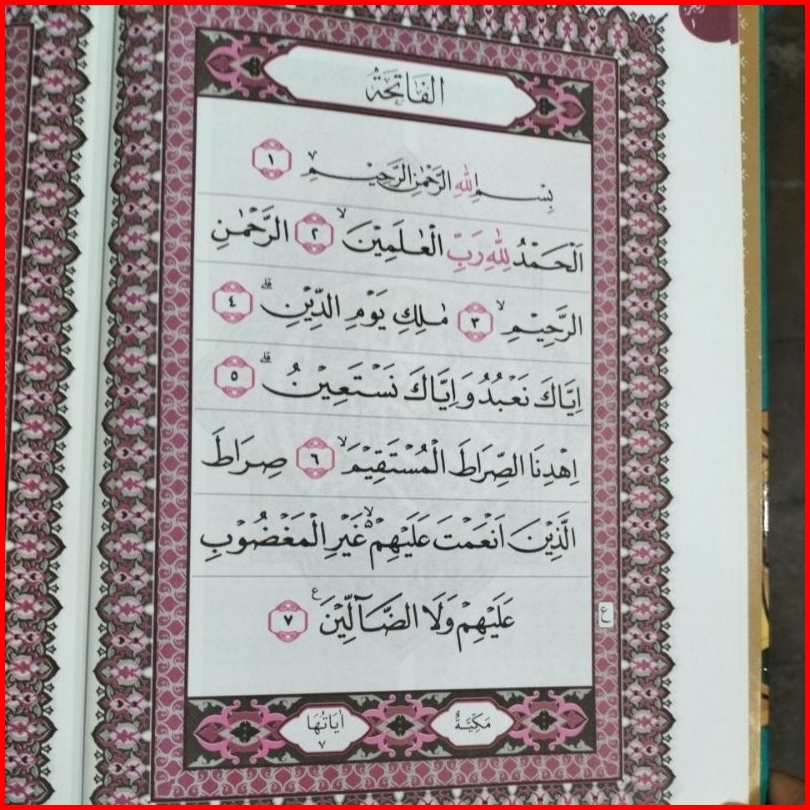 الفَاتِحَةُ
بِسْمِ اللّٰهِ الرَّحْمٰنِ الرَّحِيْمِۙ ١
اَلْحَمْدُ لِلّٰهِ رَبِّ الْعٰلَمِيْنَۙ ٢ الرَّحْمٰنِ
الرَّحِيْمِۙ ٣ مٰلِكِ يَوْمِ الدِّيْنِۗ ٤
اِيَّاكَ نَعْبُدُ وَاِيَّاكَ نَسْتَعِيْنُۗ ٥
اِهْدِنَا الصِّرَاطَ الْمُسْتَقِيْمَۙ ٦ صِرَاطَ
الَّذِيْنَ اَنْعَمْتَ عَلَيْهِمْ ەۙ غَيْرِ الْمَغْضُوْبِ
عَلَيْهِمْ وَلَا الضَّاۤلِّيْنَ ࣖ ٧
ع
مَكِيَّةٌ
اٰيَاتُهَا
٧